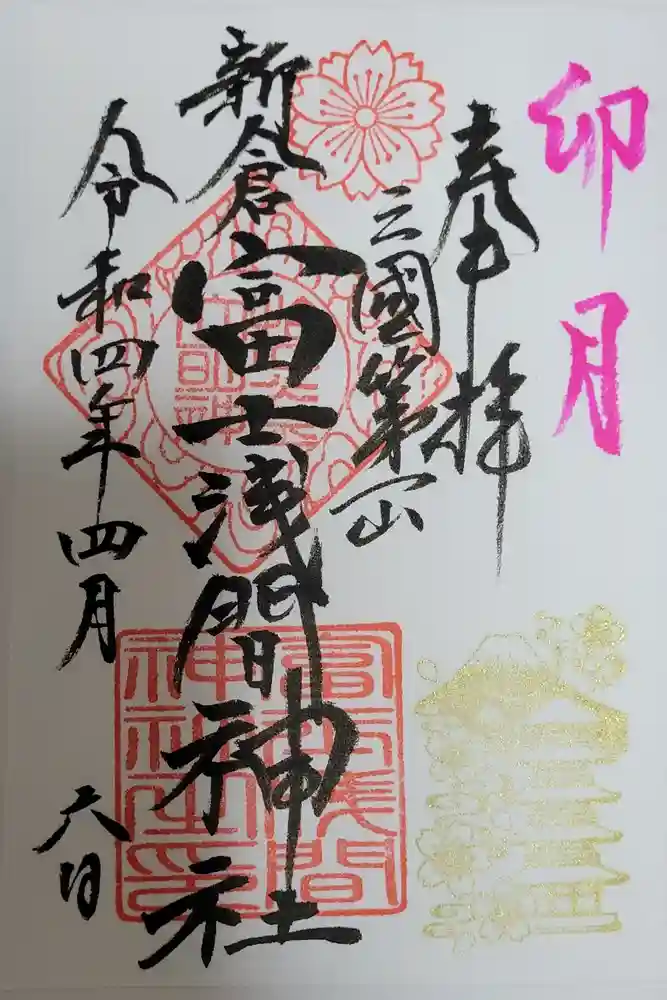 卯月
奉拝
三國第一山
新倉富士浅間神社
令和四年四月六日